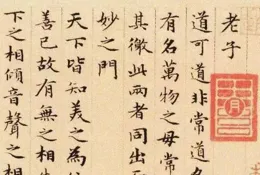 老子
道可道非常道名
有名萬物之母常
其徼此兩者同出
妙之門
天下皆知美之為
善已故有無之相
下之相傾音聲之相